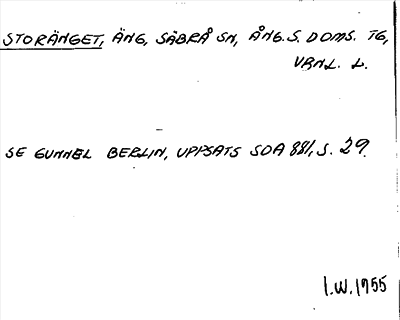 STORÄNGET, ÄNG, SÄBRÅ SN, ÅNG.S. DOMS. TG,
VRNL. L.
SE GUNNEL BERLIN, UPPSATS SOA 881, S. 29.
I.W. 1955